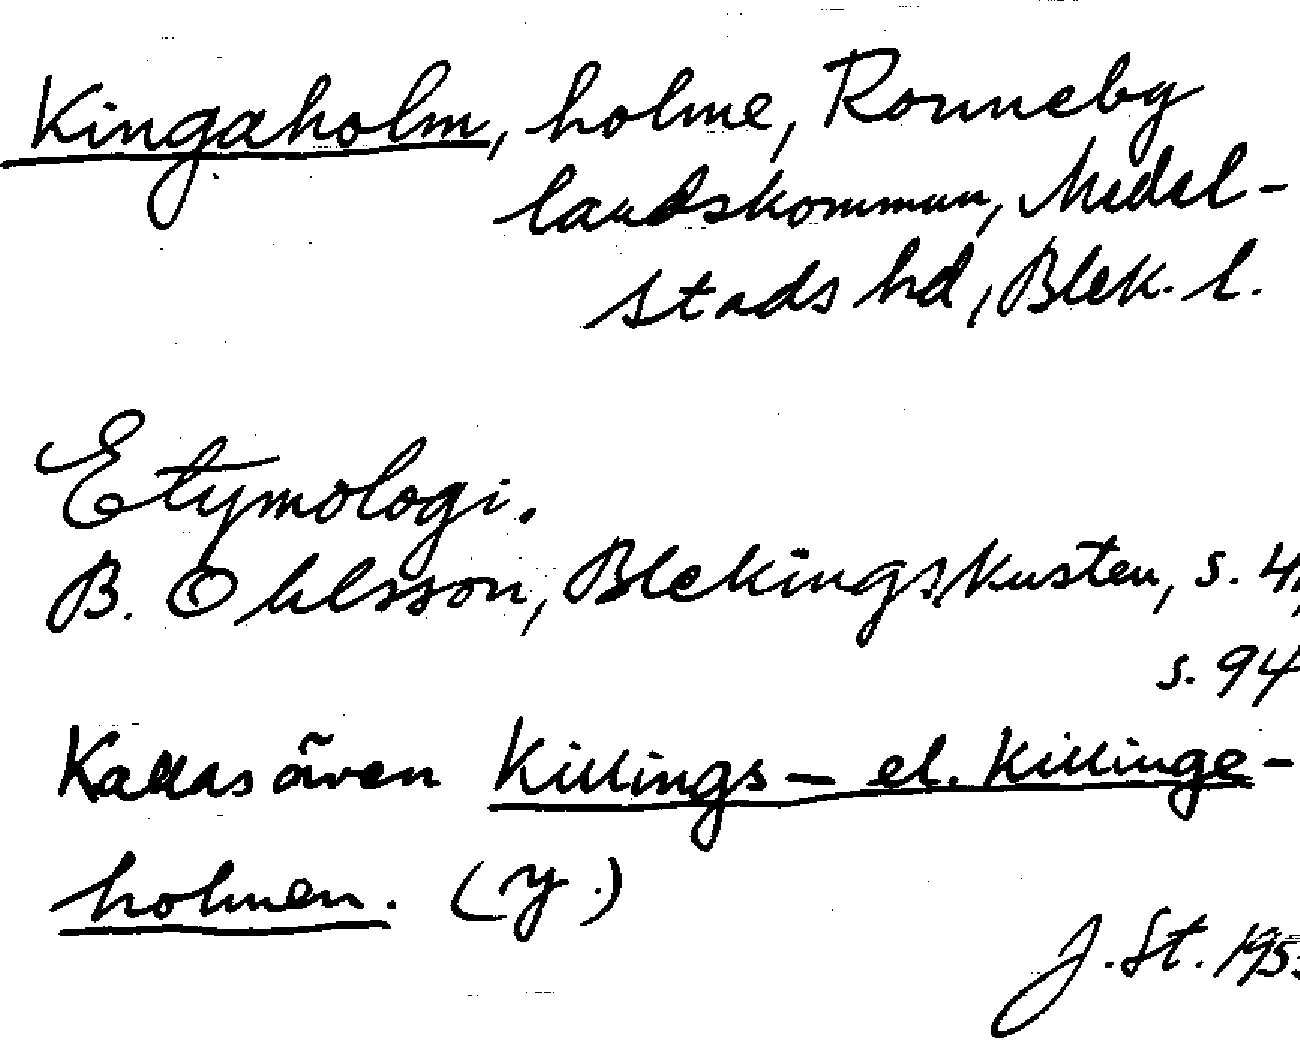 Kingaholm, holme, Ronneby
landskommun, Medel-
stads hd, Blek. l.
Etymologi.
B. Ohlsson, Blekingskusten, s. 4
s. 94
Kallas även Killings- el. Killinge-
holmen. (y.)
J. St. 195